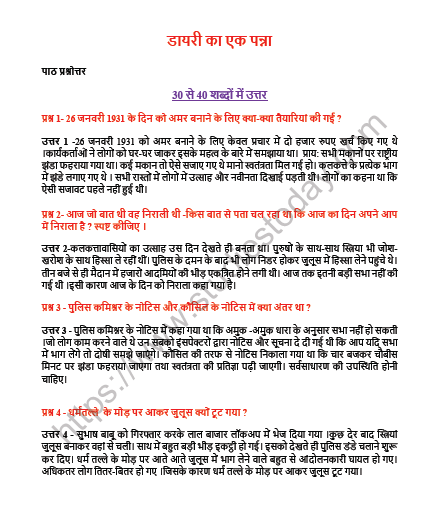 डायरी का एक पन्ना
पाठ प्रश्नोत्तर
30 से 40 शब्दों में उत्तर
प्रश्न 1- 26 जनवरी 1931 के दिन को अमर बनाने के लिए क्या-क्या तैयारियां की गईं ?
उत्तर 1 -26 जनवरी 1931 को अमर बनाने के लिए केवल प्रचार में दो हजार रुपए खर्च किए गए थे
।कार्यकर्ताओं ने लोगों को घर-घर जाकर इसके महत्व के बारे में समझाया था। प्राय: सभी मकानों पर राष्ट्रीय
झंडा फहराया गया था। कई मकान तो ऐसे सजाए गए थे मानो स्वतंत्रता मिल गई हो। कलकत्ते के प्रत्येक भाग
में झंडे लगाए गए थे । सभी रास्तों में लोगों में उत्साह और नवीनता दिखाई पड़ती थी। लोगों का कहना था कि
ऐसी सजावट पहले नहीं हुई थी।
प्रश्न 2- आज जो बात थी वह निराली थी -किस बात से पता चल रहा था कि आज का दिन अपने आप
में निराला है ? स्पष्ट कीजिए ।
उत्तर 2-कलकत्तावासियों का उत्साह उस दिन देखते ही बनता था। पुरुषों के साथ-साथ स्त्रिया भी जोश-
खरोश के साथ हिस्सा ले रहीं थीं। पुलिस के दमन के बाद भी लोग निडर होकर जुलूस में हिस्सा लेने पहुंचे थे।
तीन बजे से ही मैदान में हजारो आदमियों की भीड़ एकत्रित होने लगी थी। आज तक इतनी बड़ी सभा नहीं की
गई थी ।इसी कारण आज के दिन को निराला कहा गया है।
प्रश्न 3 - पुलिस कमिश्नर के नोटिस और कौंसिल के नोटिस में क्या अंतर था ?
उत्तर 3 - पुलिस कमिश्नर के नोटिस में कहा गया था कि अमुक -अमुक धारा के अनुसार सभा नहीं हो सकती
।जो लोग काम करने वाले थे उन सबको इंसपेक्टरो द्वारा नोटिस और सूचना दे दी गई थी कि आप यदि सभा
में भाग लेगे तो दोषी समझे जाएंगे। कौंसिल की तरफ से नोटिस निकाला गया था कि चार बजकर चौबीस
मिनट पर झंडा फहराया जाएगा तथा स्वतंत्रता की प्रतिज्ञा पढ़ी जाएगी। सर्वसाधारण की उपस्थिति होनी
चाहिए।
प्रश्न 4 - धर्मतल्ले के मोड़ पर आकर जुलूस क्यों टूट गया ?
उत्तर 4 - सुभाष बाबू को गिरफ्तार करके लाल बाजार लॉकअप में भेज दिया गया ।कुछ देर बाद स्त्रियां
जुलूस बनाकर वहां से चलीं। साथ में बहुत बड़ी भीड़ इकट्ठी हो गई। इसको देखते ही पुलिस डंडे चलाने शुरू
कर दिए। धर्म तल्ले के मोड़ पर आते आते जुलूस में भाग लेने वाले बहुत से आंदोलनकारी घायल हो गए।
अधिकतर लोग तितर-बितर हो गए ।जिसके कारण धर्म तल्ले के मोड़ पर आकर जुलूस टूट गया।